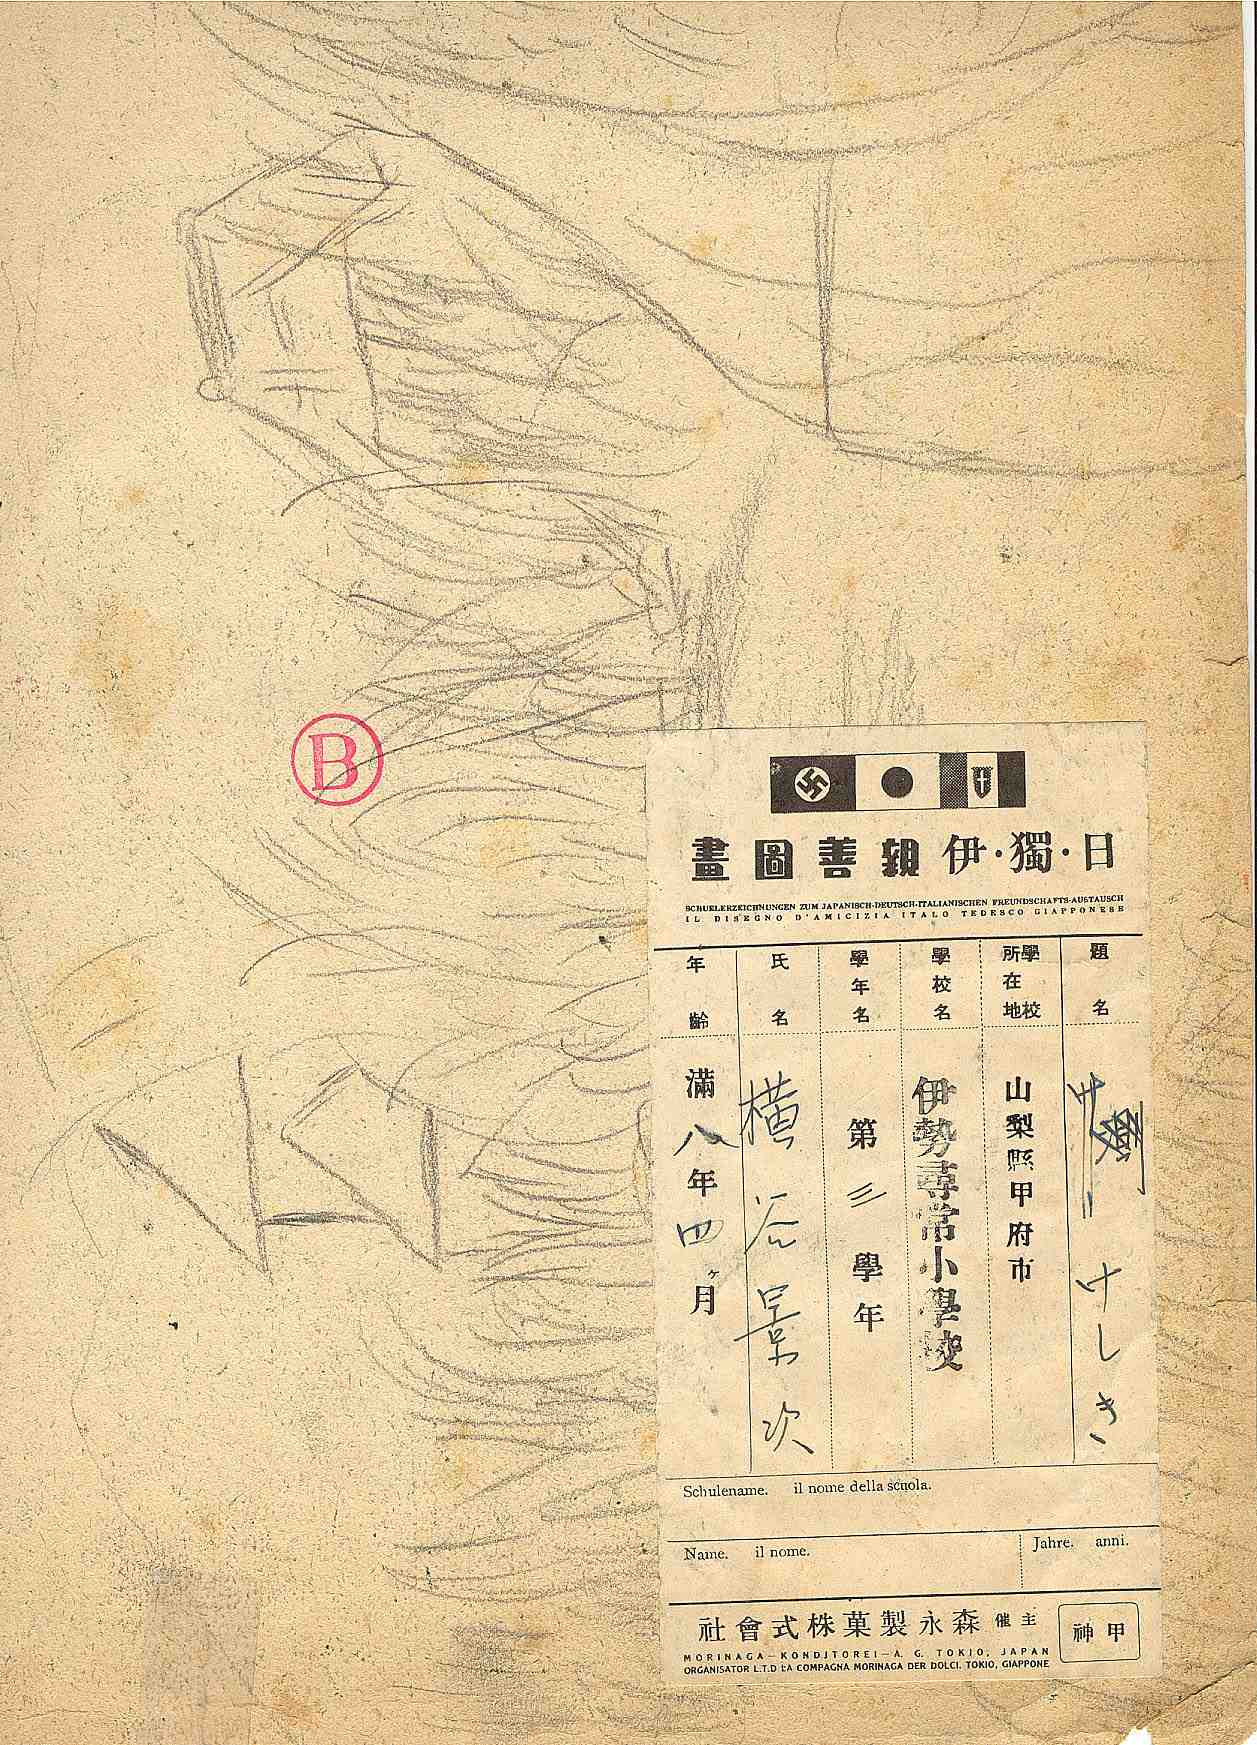 B
日・獨・伊親善圖畫
SCHUELERZEICHNUNGEN ZUM JAPANISCH-DEUTSCH-ITALIANISCHEN FREUNDSCHAFTS-AUSTAUSCH
IL DISEGNO D'AMICIZIA ITALO TEDESCO GIAPPONESE
題名
けしき
學校所在地
山梨縣甲府市
學校名
伊勢尋常小學校
學年名
第三學年
氏名
横谷景次
年齡
滿八年四ヶ月
Schulename. il nome della scuola.
Name. il nome.
Jahre. anni.
甲神
主催 森永製菓株式會社
MORINAGA-KONDITOREI-A. G. TOKIO, JAPAN
ORGANISATOR L.T.D LA COMPAGNA MORINAGA DER DOLCI. TOKIO, GIAPPONE